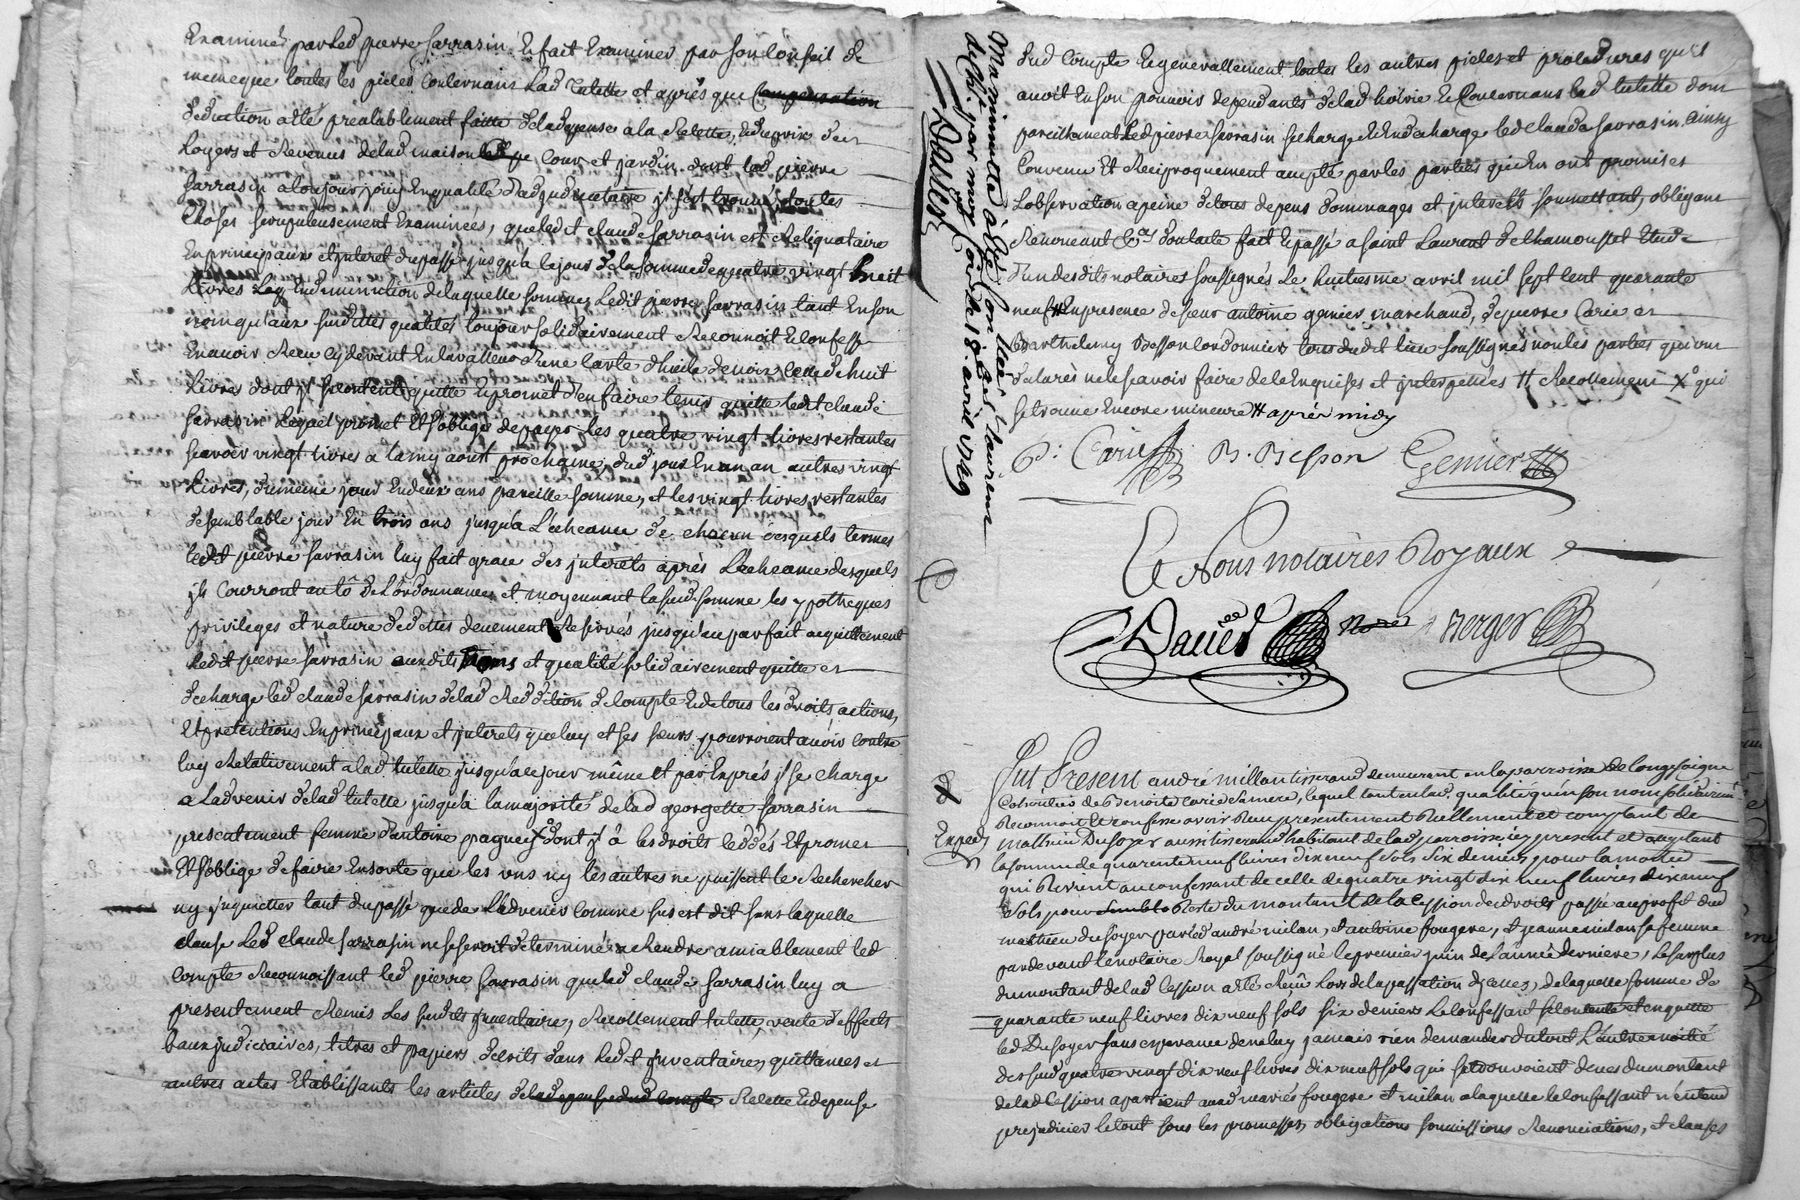 Examiné par led pierre sarrasin Et fait Examiner par son Conseil de
meme que toutes les pieces Concernans lad tutelle et après que Compensation
deduction a été prealablement faitte de lad depense a la Relette, Et du prix des
Loyers et Revenus de lad maison Cour et jardin dont led pierre
sarrasin a toujour jouy En qualité d'adjudicataire jl s'est trouvé toutes
Choses scrupuleusement Examinées, que led claude sarrasin est Reliquataire
En principaux et jnteret du passé jusqu'a le jour de la somme de quatre vingt huit
Livres En diminution de laquelle somme, Ledit pierre sarrasin tant En son
nom qu'aux susdittes qualités toujour solidairement Reconnoit Et Confesse
En avoir Receu cy devant En la valleur d'une Carte d'huile de noix Celle de huit
Livres dont jl se contente quitte Et promet d'en faire tenir quitte ledit claude
sarrasin Lequel promet Et s'oblige de payer Les quatre vingt livres restantes
scavoir vingt livres a la my aoust prochaine, dud jour En un an autres vingt
Livres, du meme jour En deux ans pareille somme, et les vingt livres restantes
de semblable jour En trois ans jusqu'a L'echeance de chacun desquels termes
ledit pierre sarrasin luy fait grace des jnterets après L'echeance desquels
jls Courront au tô de L'ordonnance et moyennant lasusd somme les ypotheques
privileges et nature de dettes demeurent Reservés jusqu'au parfait acquittement
Ledit pierre sarrasin auxdits noms et qualité solidairement quitte et
decharge led claude sarrasin de lad Reddition de Compte Et de tous les droits actions,
Et pretentions En principaux et jnterets que luy et ses sœurs pourroient avoir contre
luy Relativement a lad tutelle jusqu'a ce jour même Et par Exprés jl se charge
a Ladvenir de lad tutelle jusqu'a la majorité de lad georgette sarrasin
presentement femme d'antoine pagney X° dont jl a les droits cedés Et promet
Et s'oblige de faire En sorte que les uns ny les autres ne puissent le Rechercher
ny jnquietter tant du passé que de L'advenir Comme sus est dit sans laquelle
clause Led claude sarrasin ne se seroit determiné a Rendre amiablement led
Compte Reconnoissant led pierre sarrasin que led claude sarrasin luy a
presentement Remis Les susdits jnventaire, Recollement tutelle, vente d'effects
baux judiciaires, titres et papiers decrits dans Ledit jnventaire, quittances et
autres actes Etablissants les articles de lad depense dud Compte Relette Et depense
dud Compte Et generallement toutes les autres pieces et procedures qu'il
avoit En son pouvoir dependants de lad hoirie Et Concernans lad tutelle dont
pareillement led pierre sarrasin se charge Et En decharge led claude sarrasin, ainsy
Convenu Et Reciproquement accepté par les parties qui En ont promises
L'observation a peine de tous depens dommages et jnterests soumettant, obligeant
Renonceant &as dont acte fait Et passé a saint Laurent de Chamousset Etude
d'un desdits notaires soussignés Le huitiesme avril mil sept cent quarante
neuf # En presence de sieur antoine genier marchand, de pierre Carie et
Barthelemy Besson cordonnier tous dudit lieu soussignés non les parties qui ont
declarés ne le scavoir faire de ce Enquises et jnterpellées # Recollement X° qui
se trouve Encore mineure # après midy
P: Carie B. Besson Genier
Et Nous notaires Royaux
Daver Nore Berger
Ma minutte a été Contrôlée a st laurent
de Ch. par moy Soud. le 18. avril 1749
Daver
Exped
Fut Present andré millan tisserand demeurant en la parroisse de longesaigne
Cohéritier de Benoite Carie sa mere, lequel tant en lad. qualité qu'en son nom solidairemt
Reconnoit et confesse avoir Reçu presentement Réellement et comptant de
mathieu Dusoyer aussi tisserand habitant de lad parroisse icy present et acceptant
la somme de quarente neuf livres dix neuf sols six deniers pour la moitié
qui Revient au confessant de celle de quatre vingt dix neuf livres dix neuf
sols pour Reste du montant de la cession de droits passée au profit dud
mathieu dusoyer par led andré milan, et antoine fougere, et jeanne milan sa femme
par devant le notaire Royal soussigné le premier juin de l'année derniere, Le surplus
du montant de lad Cession a été Reçû Lors de la passation d'jcelles, de laquelle somme de
quarante neuf livres dix neuf sols six deniers Le Confessant se contente et en quitte
led Dusoyer sans esperance de ne luy jamais rien demander du tout L'autre moitié
des susd quatre vingt dix neuf livres dix neuf sols qui se trouvoient deües du montant
de lad Cession apartient auxd mariés fougere et milan a laquelle le Confessant n'entend
prejudicier le tout sous les promesses, obligations soumissions Renonciations, et clauses